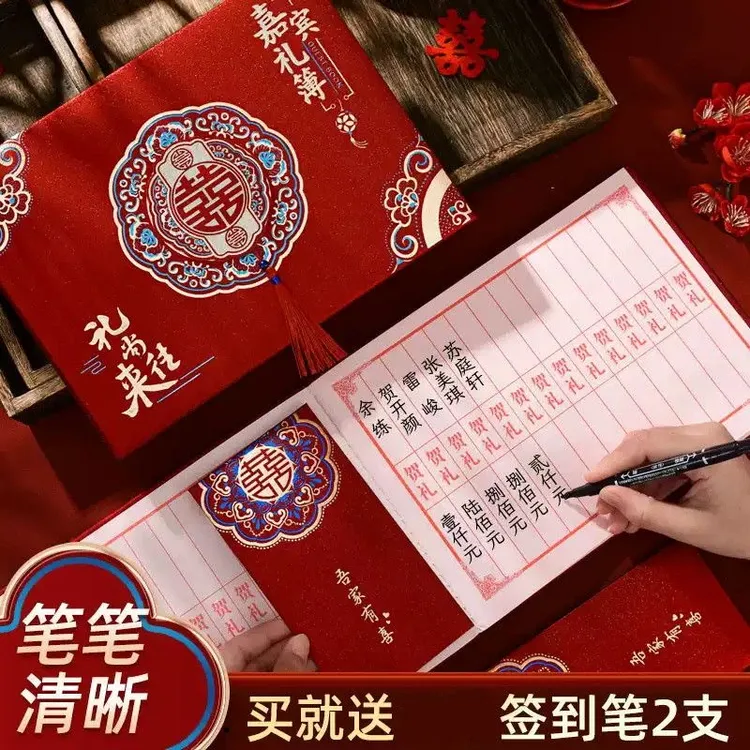 嘉宾礼簿
囍
礼尚往来
囍
苏庭轩
张美琪
雷峻
贺开颜
余练
贺礼 贺礼 贺礼 贺礼 贺礼 贺礼 贺礼 贺礼 贺礼 贺礼 贺礼 贺礼
贰仟元
捌佰元
捌佰元
陆佰元
壹仟元
囍
吾家有喜
贺礼 贺礼
吾家有喜
笔笔
清晰
买就送
签到笔2支